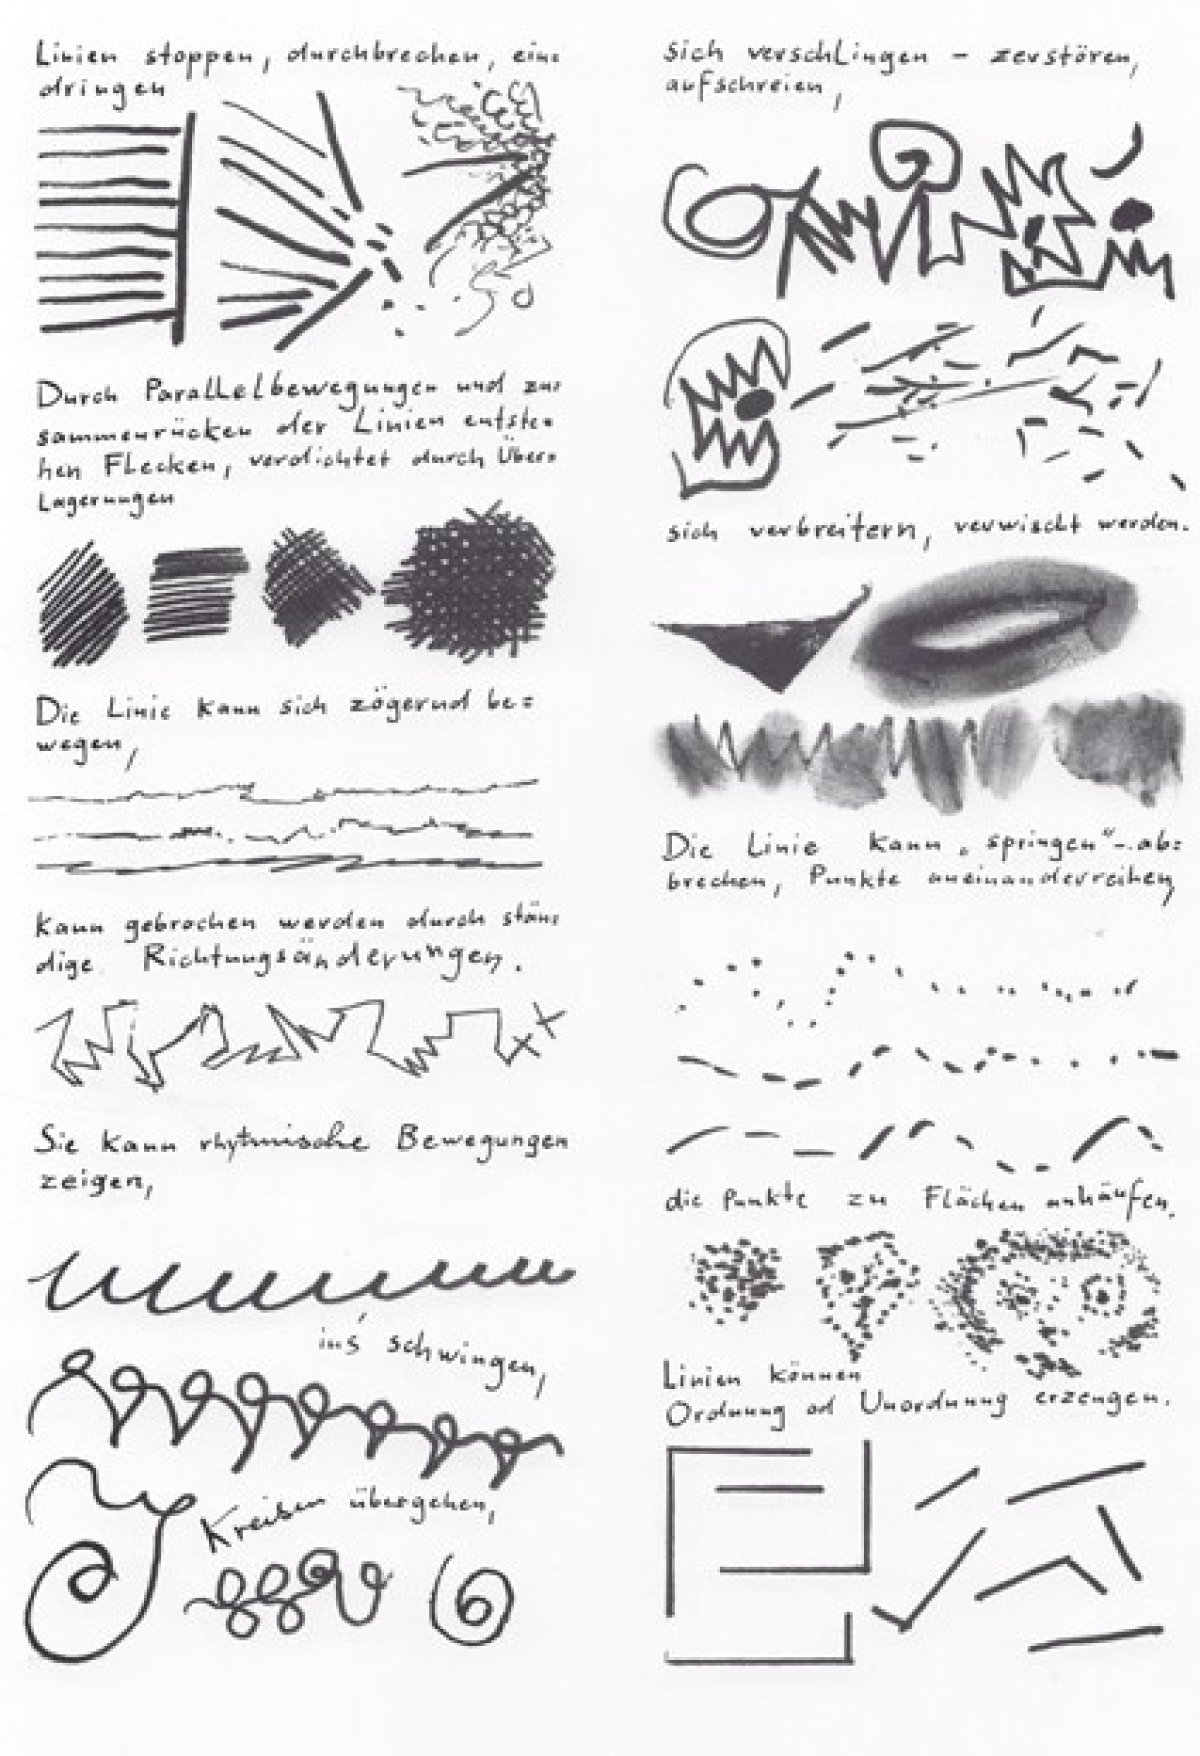 Linien stoppen, durchbrechen, ein=
dringen
Durch Parallelbewegungen und zu=
sammenrücken der Linien entste=
hen Flecken, verdichtet durch Über=
lagerungen
Die Linie kann sich zögernd be=
wegen,
kann gebrochen werden durch stän=
dige Richtungsänderungen.
Sie kann rhytmische Bewegungen
zeigen,
ins schwingen,
Kreisen übergehen,
sich verschlingen - zerstören,
aufschreien,
sich verbreitern, verwischt werden.
Die Linie kann „springen" - ab=
brechen, Punkte aneinanderreihen,
die Punkte zu Flächen anhäufen.
Linien können
Ordnung od Unordnung erzeugen.